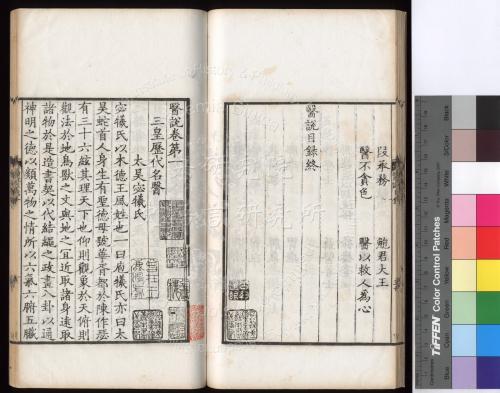 段承務 鮑君大王
醫不貪色 醫以救人為心
醫說目録終
醫說卷第一
三皇歷代名醫
太昊宓犧氏
宓犧氏以木德王風姓也一曰庖犧氏亦曰太
昊蛇首人身生有聖德母號華胥都於陳作瑟
有三十六絃其理天下也仰則觀象於天俯則
觀法於地鳥獸之文與地之宜近取諸身遠取
諸物於是造書契以代結繩之政畫八卦以通
神明之德以類萬物之情所以六氣六腑五臟
TIFFEN Color Control Patches
Blue
Cyan
Green
Yellow
Red
Magenta
White
3/Color
Black